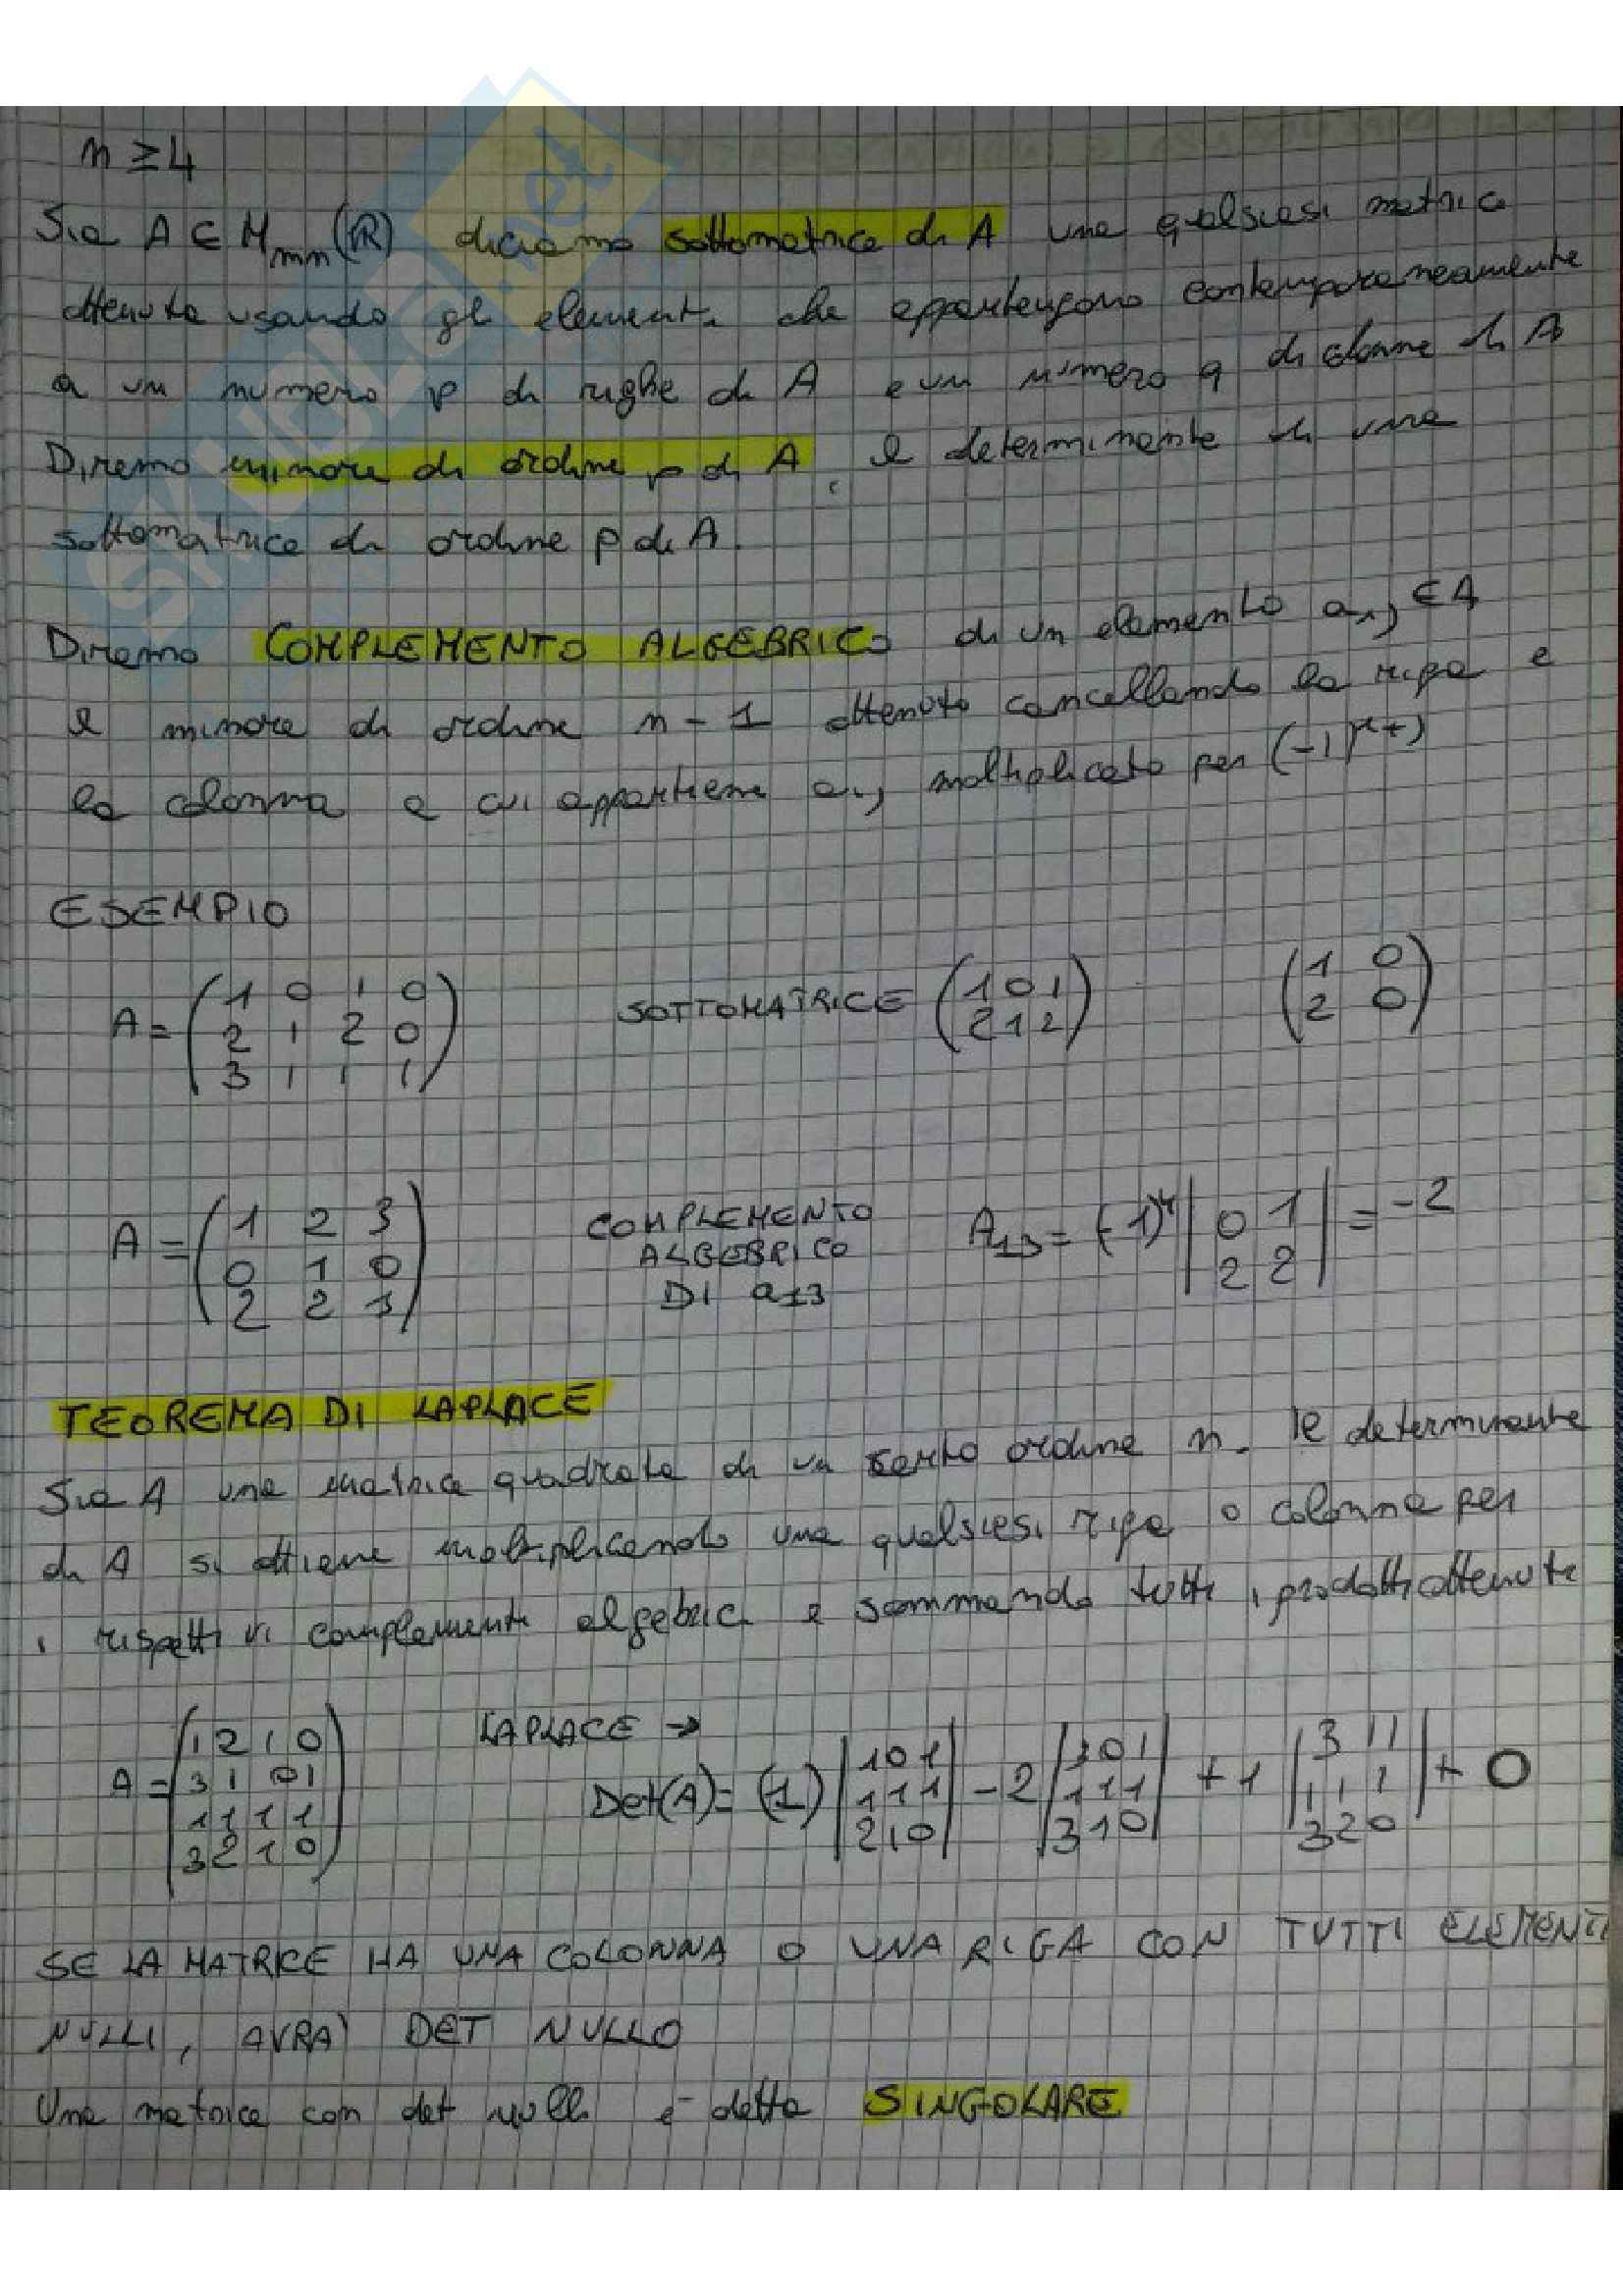 n ≥ 4
Sia A ∈ Mmn(R) diciamo sottomatrice di A una qualsiasi matrice
ottenuta usando gli elementi che appartengono contemporaneamente
a un numero p di righe di A e un numero q di colonne di A
Diremo minore di ordine p di A, il determinante di una
sottomatrice di ordine p di A.
Diremo COMPLEMENTO ALGEBRICO di un elemento aij ∈ A
il minore di ordine n-1 ottenuto cancellando la riga e
la colonna a cui appartiene aij moltiplicato per (-1)^i+j
ESEMPIO
A = (1 0 1 0 SOTTOMATRICE (1 0 1 (1 0
2 1 2 0 2 1 2) 2 0)
3 1 1 1)
A = (1 2 3 COMPLEMENTO A13 = (-1)^4 |0 1| = -2
0 1 0 ALGEBRICO |2 2|
2 2 1) DI a13
TEOREMA DI LAPLACE
Sia A una matrice quadrata di un certo ordine n. Il determinante
di A si ottiene moltiplicando una qualsiasi riga o colonna per
i rispettivi complementi algebrici e sommando tutti i prodotti ottenuti
A = (1 2 1 0 LAPLACE →
3 1 0 1 Det(A) = (1) |1 0 1| - 2 |3 0 1| + 1 |3 1 1| + 0
1 1 1 1 |1 1 1| |1 1 1| |1 1 1|
3 2 1 0) |2 1 0| |3 1 0| |3 2 0|
SE LA MATRICE HA UNA COLONNA O UNA RIGA CON TUTTI ELEMENTI
NULLI, AVRA' DET NULLO
Una matrice con det nullo è detta SINGOLARE
SKUOLA.net